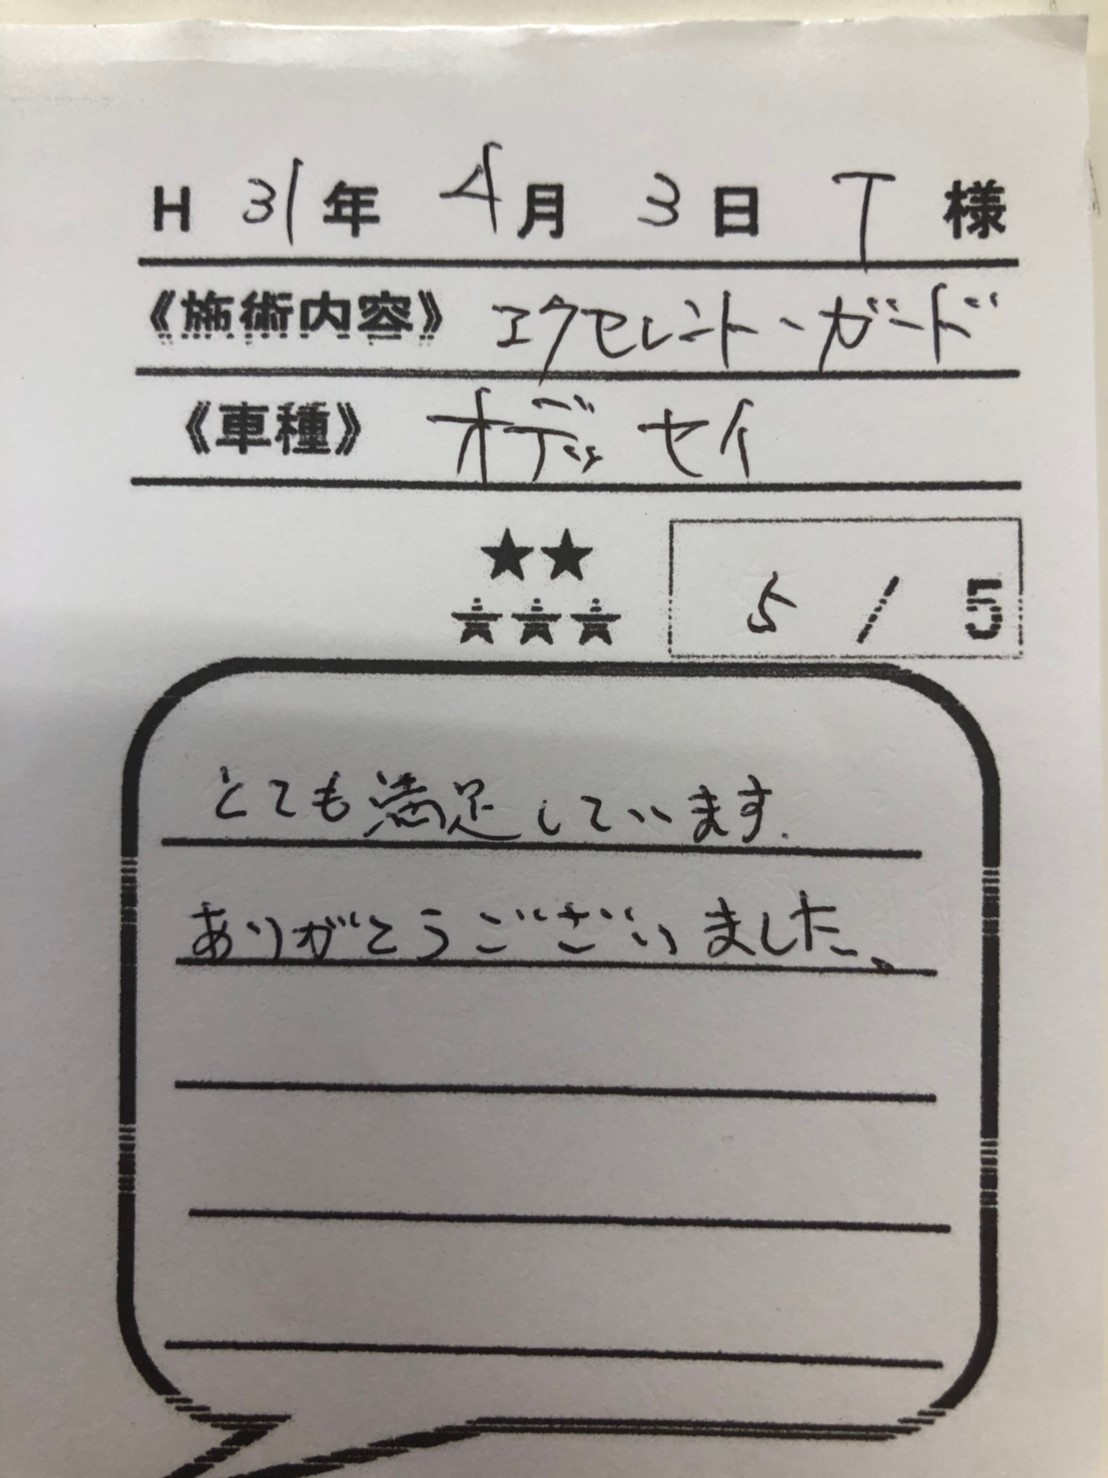 H 31年 4月 3日 T 様
《施術内容》 エクセレント・ガード
《車種》 オデッセイ
★★
★★★
5 / 5
とても満足しています.
ありがとうございました。